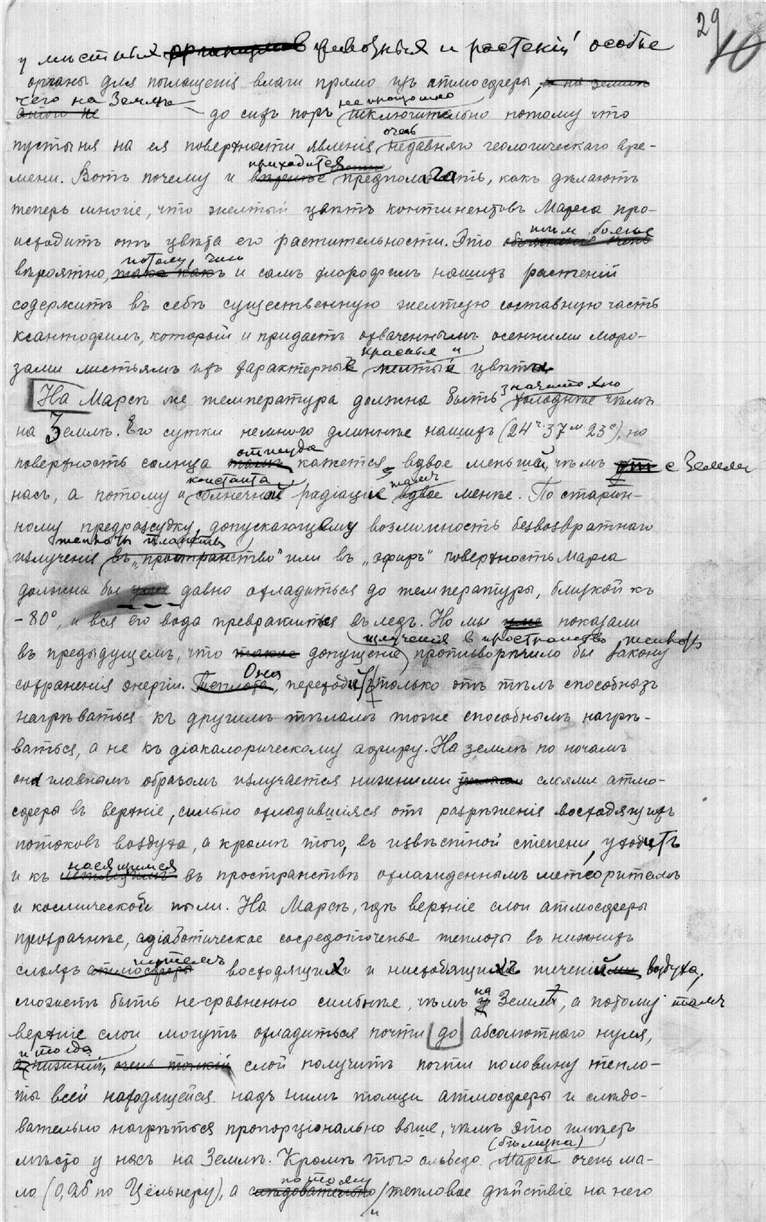 29
10
у мѣстныхъ организмовъ животныхъ и растеній особые
органы для поглощенія влаги прямо изъ атмосферы,
чего на Землѣ до сихъ поръ не произошло исключительно потому что
пустыня на ея поверхности явленіе очень недавняго геологическаго вре-
мени. Вотъ почему и приходится предполагать, какъ дѣлаютъ
теперь многіе, что желтый цвѣтъ континентовъ Марса про-
исходитъ отъ цвѣта его растительности. Это тѣмъ болѣе
вѣроятно, потому, что и самъ хлорофилъ нашихъ растеній
содержитъ въ себѣ существенную желтую составную часть
ксантофилъ, который и придаетъ охваченнымъ осенними моро-
зами листьямъ ихъ характерные красные и желтые цвѣта.
На Марсѣ же температура должна быть значительно холоднѣе чѣмъ
на Землѣ. Его сутки немного длиннѣе нашихъ (24ч 37м 23с), но
поверхность солнца оттуда кажется вдвое меньшей, чѣмъ съ Земли
намъ, а потому и константа солнечной радіаціи тамъ вдвое менѣе. По старин-
ному предразсудку, допускающему возможность безвозвратнаго
излученія теплоты планеты въ „пространство" или въ „эфиръ" поверхность Марса
должна бы давно охладиться до температуры, близкой къ
-80°, и вся его вода превратиться въ ледъ. Но мы показали
въ предыдущемъ, что допущеніе излученія въ пространство противорѣчило бы закону
сохраненія энергіи. Она переходитъ только отъ тѣлъ способныхъ
нагрѣваться къ другимъ тѣламъ тоже способнымъ нагрѣ-
ваться, а не къ діакалорическому эфиру. На землѣ по ночамъ
она главнымъ образомъ излучается нижними слоями атмо-
сферы въ верхніе, сильно охладившіяся отъ разрѣженія восходящихъ
потоковъ воздуха, а кромѣ того, въ извѣстной степени, уходитъ
и къ носящимся въ пространствѣ охлажденнымъ метеоритамъ
и космической пыли. На Марсѣ, гдѣ верхніе слои атмосферы
прозрачнѣе, адіабатическое сосредоточенье теплоты въ нижнихъ
слояхъ путемъ восходящихъ и нисходящихъ теченій воздуха,
можетъ быть несравненно сильнѣе, чѣмъ на Землѣ, а потому тамъ
верхніе слои могутъ охладиться почти до абсолютнаго нуля,
и тогда нижній слой получитъ почти половину тепло-
ты всей находящейся надъ нимъ толщи атмосферы и слѣдо-
вательно нагрѣться пропорціонально выше, чѣмъ это имѣетъ
мѣсто у насъ на Землѣ. Кромѣ того альбедо (бѣлизна) Марса очень ма-
ло (0,26 по Цёльнеру), а потому и тепловое дѣйствіе на него